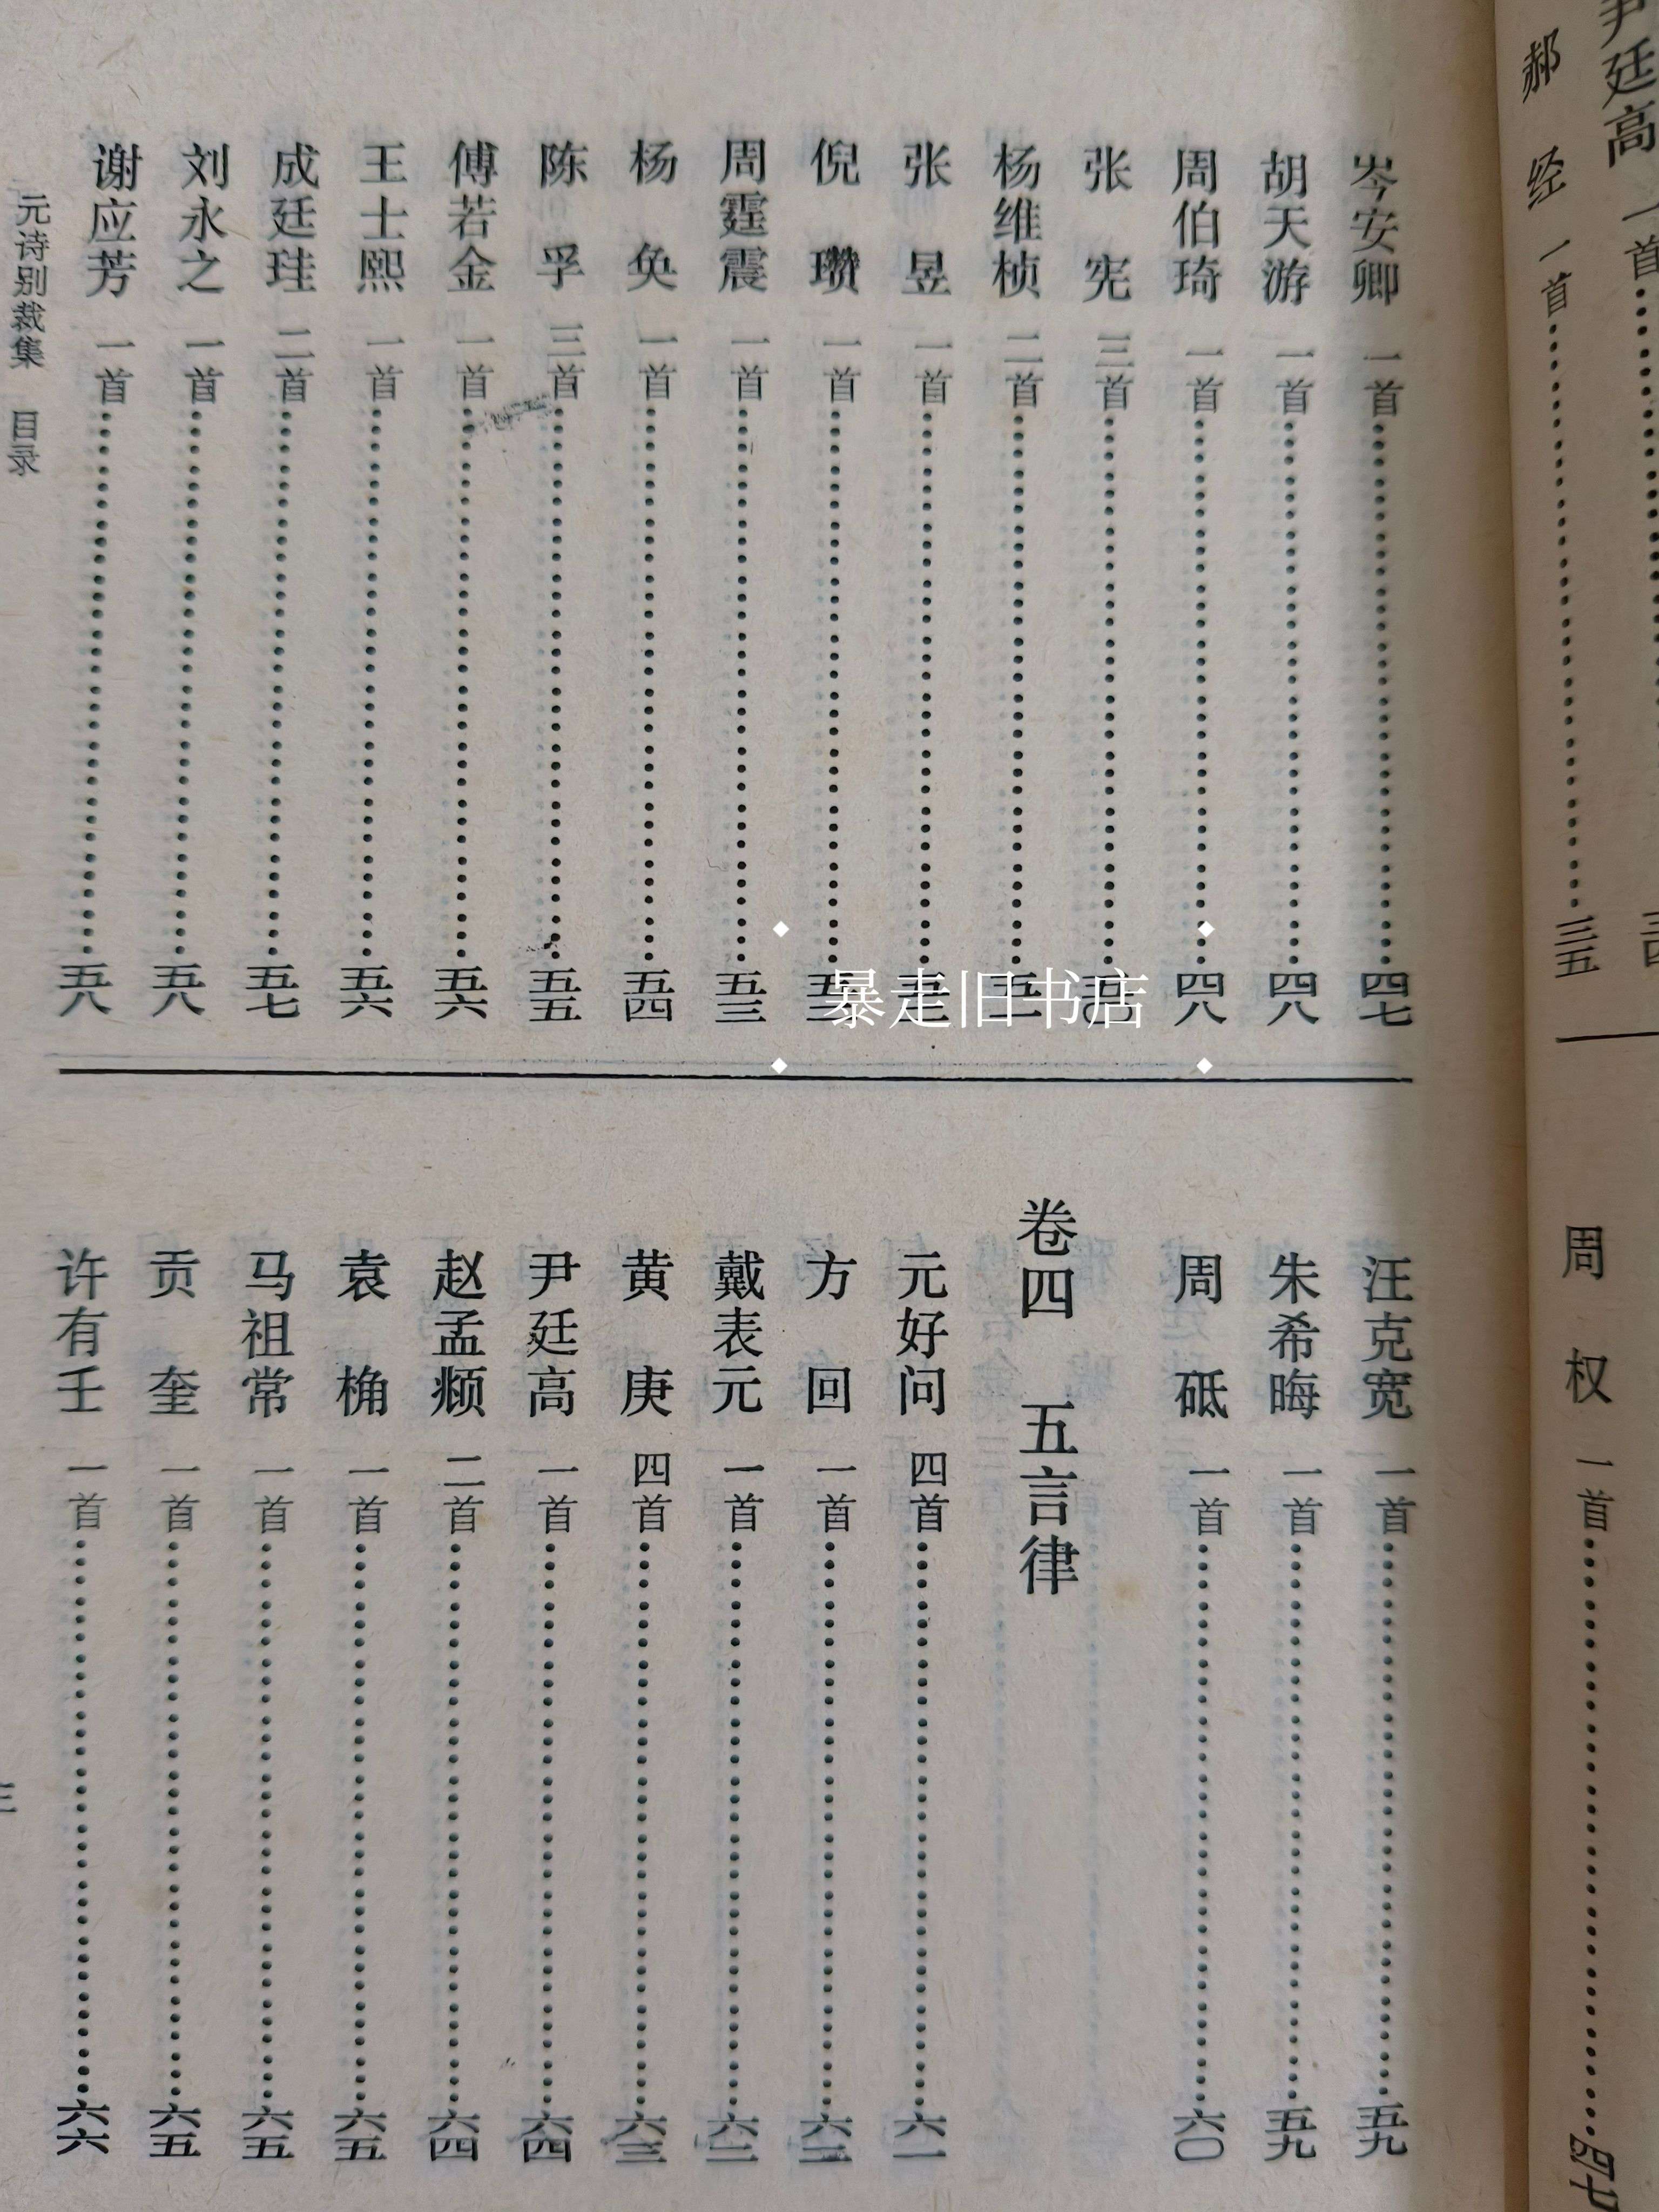 尹廷高 一首
郝 经 一首……三五
周 权 一首……四七
岑安卿 一首……四七
胡天游 一首……四八
周伯琦 一首……四八
张 宪 三首……
杨维桢 二首……
张 昱 一首……
倪 瓒 一首……
周霆震 一首……五三
杨 奂 一首……五四
陈 孚 三首……五五
傅若金 一首……五六
王士熙 一首……五六
成廷珪 二首……五七
刘永之 一首……五八
谢应芳 一首……五八
汪克宽 一首……五九
朱希晦 一首……五九
周 砥 一首……六〇
卷四 五言律
元好问 四首……六一
方 回 一首……六二
戴表元 一首……六二
黄 庚 四首……六三
尹廷高 一首……六四
赵孟頫 二首……六四
袁 桷 一首……六五
马祖常 一首……六五
贡 奎 一首……六五
许有壬 一首……六六
元诗别裁集 目录
三
暴走旧书店